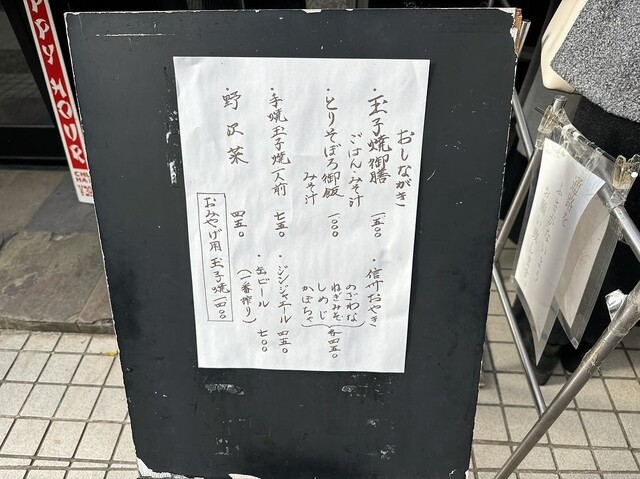 おしながき
・玉子焼御膳 一五〇〇
ごはん・みそ汁
・とりそぼろ御飯 一〇〇〇
みそ汁
・手焼玉子焼一人前 七五〇
・野沢菜 四五〇
・信州おやき
のざわな
ねぎみそ
しめじ
かぼちゃ
各四五〇
・ジンジャエール 四五〇
・缶ビール 七〇〇
(一番搾り)
おみやげ用 玉子焼 一四〇〇
PPY HOUR